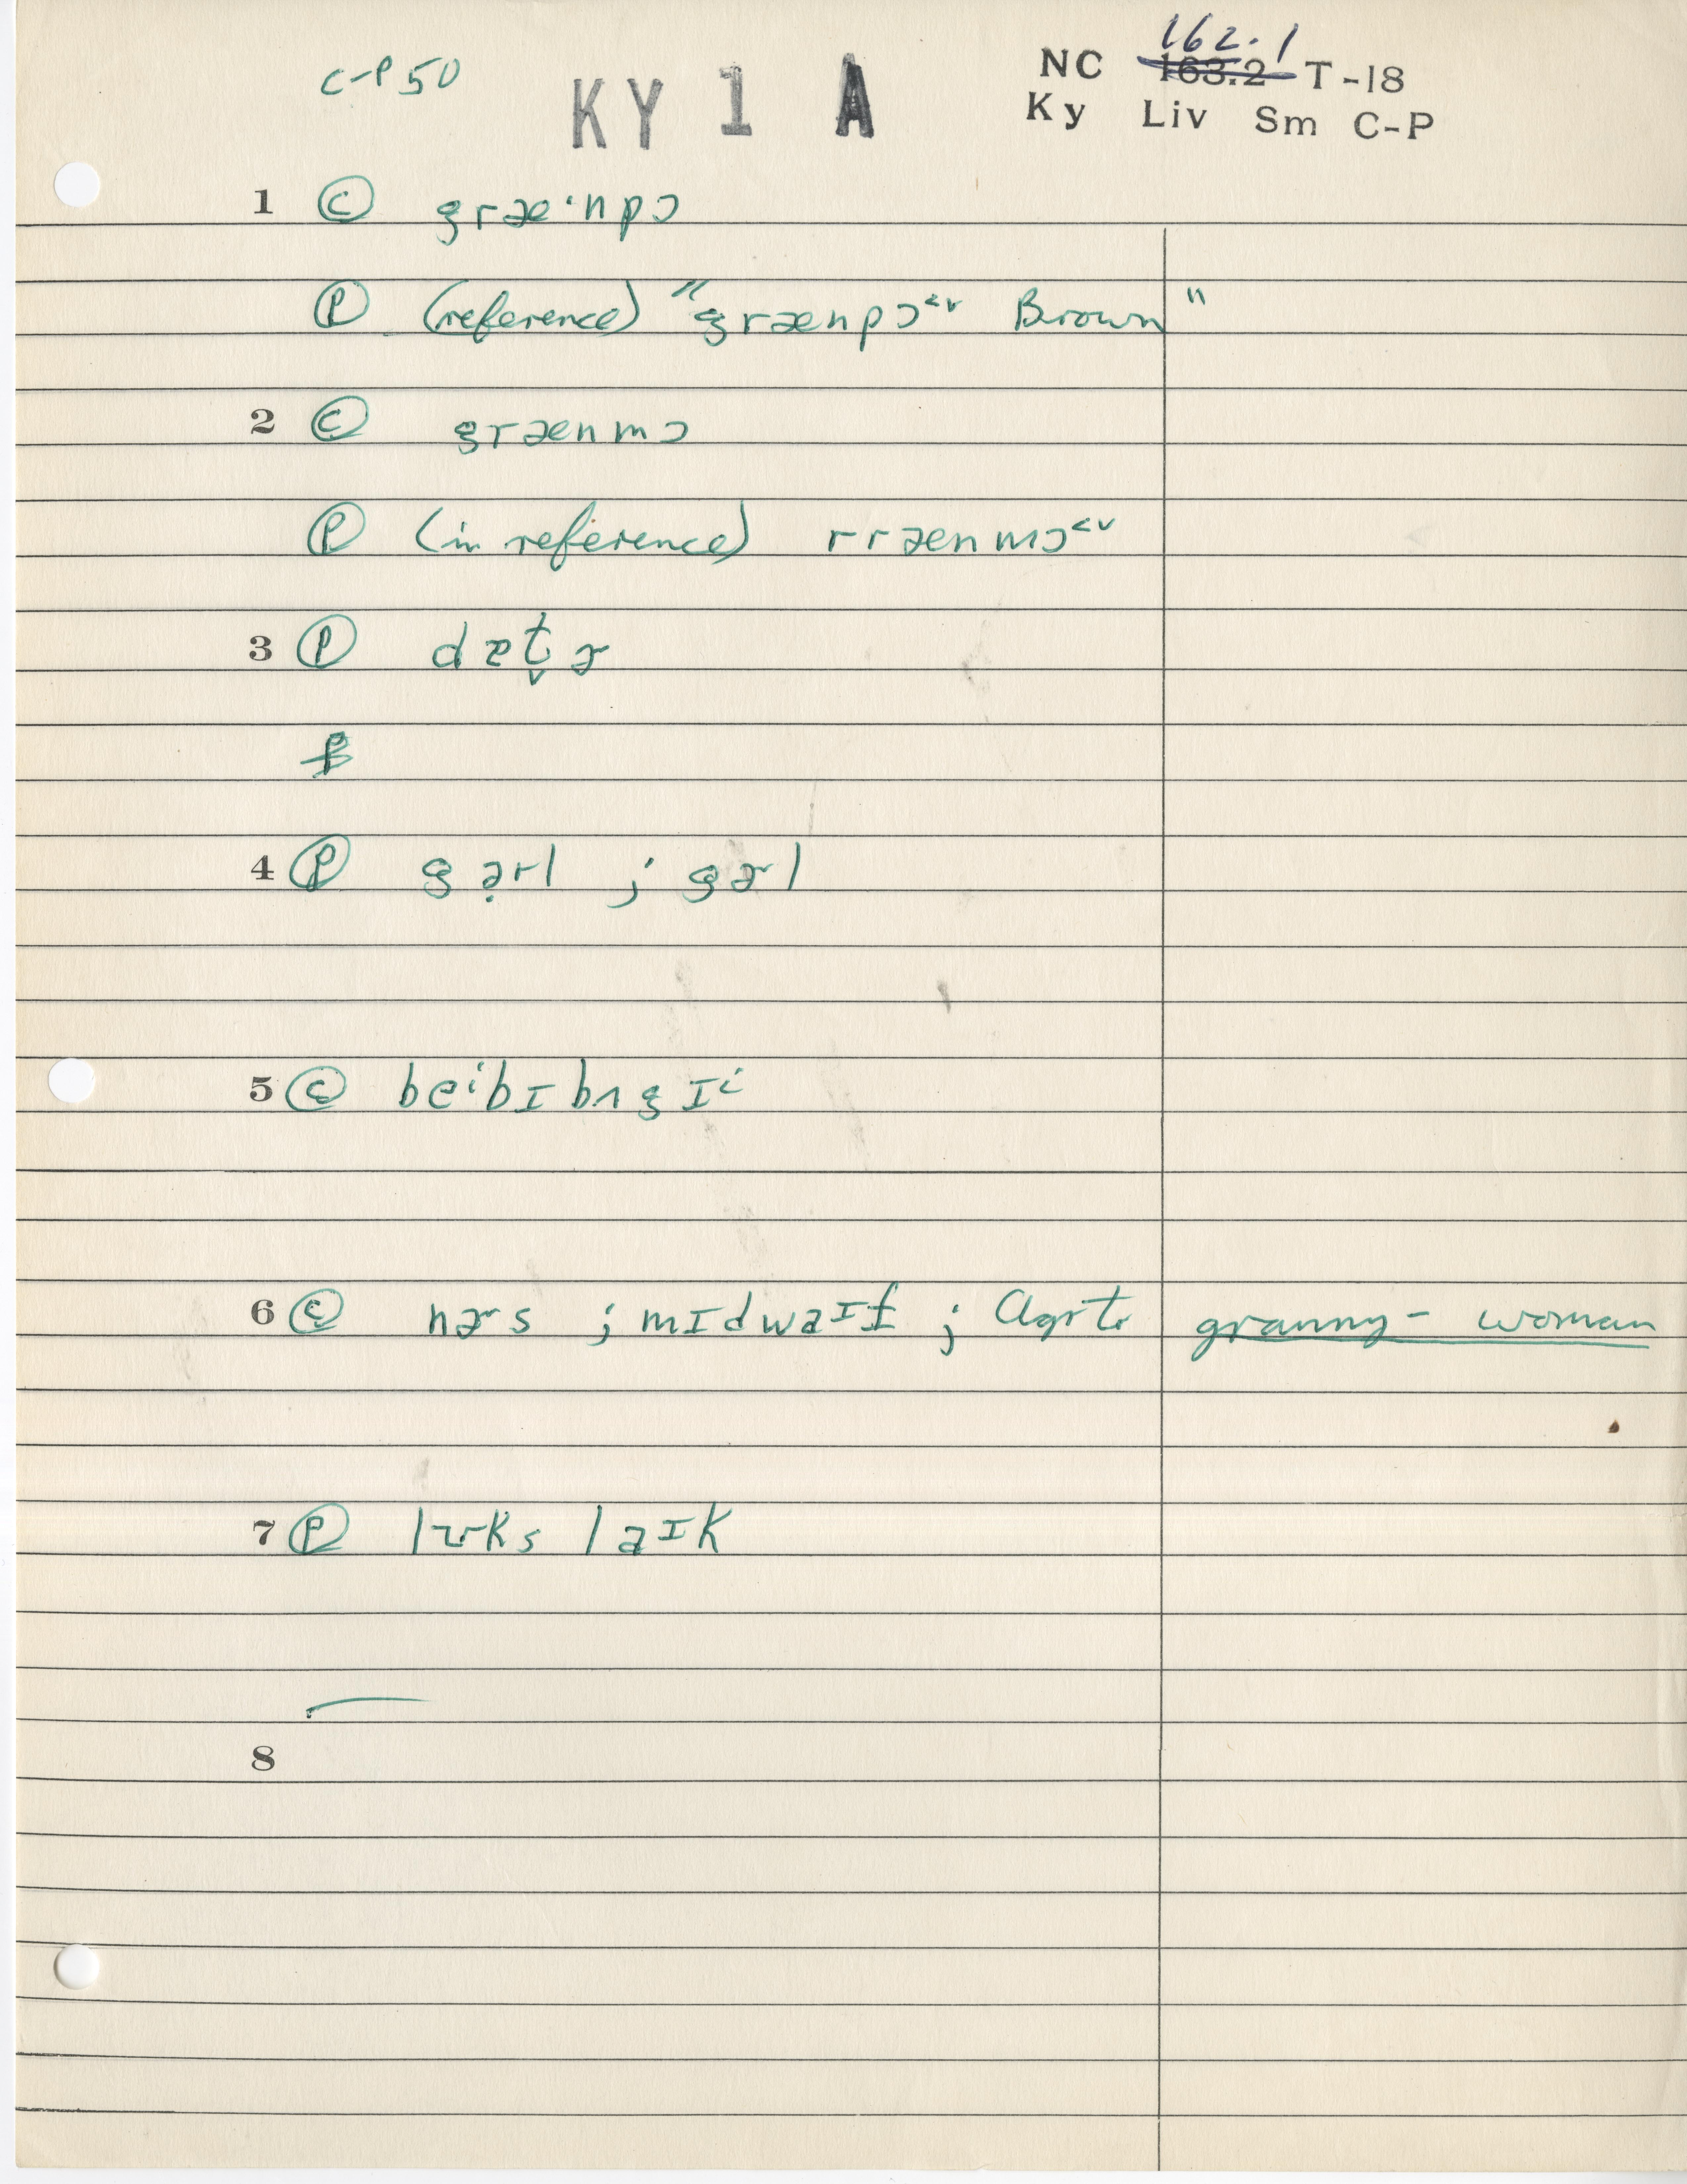 C-P 50 KY 1 A NC ~~163.2~~ 162.1 T-18
Ky Liv Sm C-P
1 Ⓒ græ·npɔ
Ⓟ (reference) "grænpɔ˂˅ Brown"
2 Ⓒ grænmɔ
Ⓟ (in reference) rrænmɔ˂˅
3 Ⓟ dɐt̬ɚ
4 Ⓟ gə̣rl ; gɚl
5 Ⓒ beⁱbɪ bʌgɪⁱ
6 Ⓒ nɚs ; mɪdwaᶦf ; granny-woman
7 Ⓟ lʊks laᶦk
8